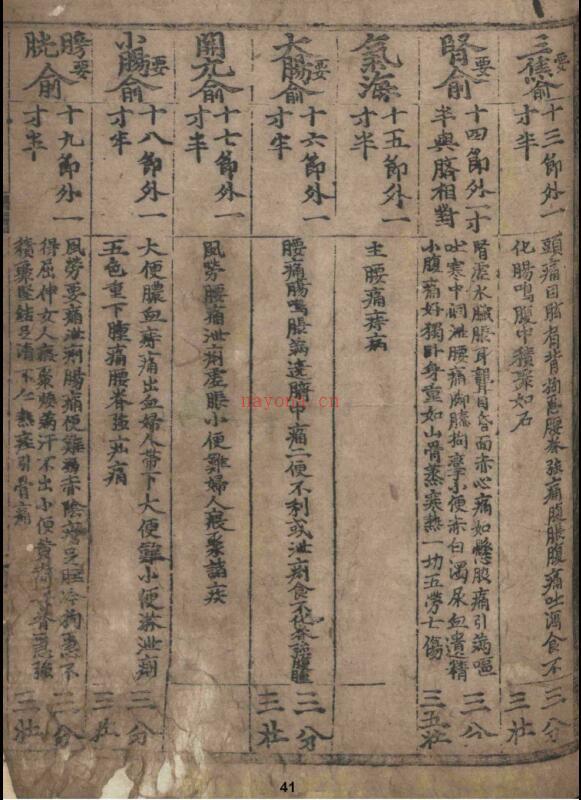 三焦俞 要
十三節外一
寸半
頭痛目眩肩背拘急腰脊強痛腹脹腹痛吐瀉食不
化腸鳴腹中積聚如石
三分
三壯
腎俞 要
十四節外一寸
半與臍相對
腎虛水臟脹耳聾目昏面赤心痛如懸股痛引滿嘔
吐寒中洞泄腰痛脚膝拘攣小便赤白濁尿血遺精
小腹痛好獨卧身重如山骨蒸寒熱一切五勞七傷
三分
三五壯
氣海
十五節外一
寸半
主腰痛痔病
大腸俞 要
十六節外一
寸半
腰痛腸鳴脹滿遶臍中痛二便不利或泄痢食不化
三分
三壯
關元俞
十七節外一
寸半
風勞腰痛泄痢虛脹小便難婦人瘕聚諸疾
小腸俞 要
十八節外一
寸半
大便膿血痔痛出血婦人帶下大便難小便淋泄痢
五色重下腫痛腰脊強疝痛
三分
三壯
膀胱俞 要
十九節外一
寸半
風勞要痛泄痢腸痛便難赤陰瘡足脛冷拘急不
得屈伸女人瘕聚煩滿汗不出小便黃脊急強
積聚堅結足清不仁熱痙引骨痛
二分
三壯
nayona.cn
41